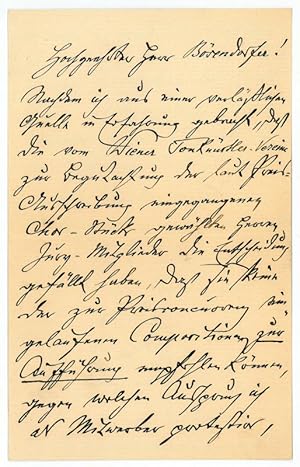 Hochgeehrter Herr Bösendorfer!
Nachdem ich aus einer verläßlichen
Quelle in Erfahrung gebracht, daß
die vom Wiener Tonkünstler-Verein
zur Begutachtung der laut Preis-
Ausschreibung eingegangenen
Chor-Stücke gewählten Herren
Jury-Mitglieder die Entscheidung
gefällt haben, daß sie keine
der zur Preisconcurrenz ein-
gelaufenen Compositionen zur
Aufführung empfehlen können,
gegen welchen Ausspruch ich
als Mitwerber protestire,